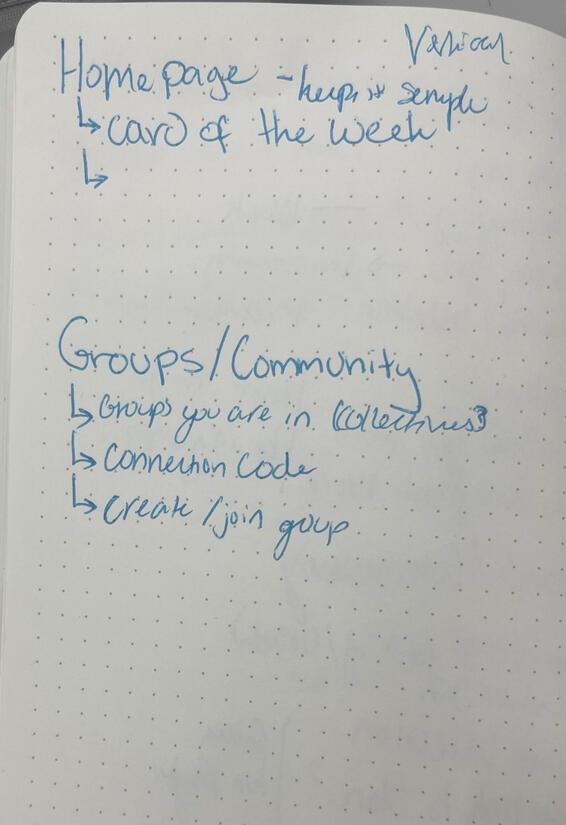 Home page - keep it simple
↳ card of the week
↳
Groups/Community
↳ Groups you are in (collectives)
↳ Connection Code
↳ create/join group